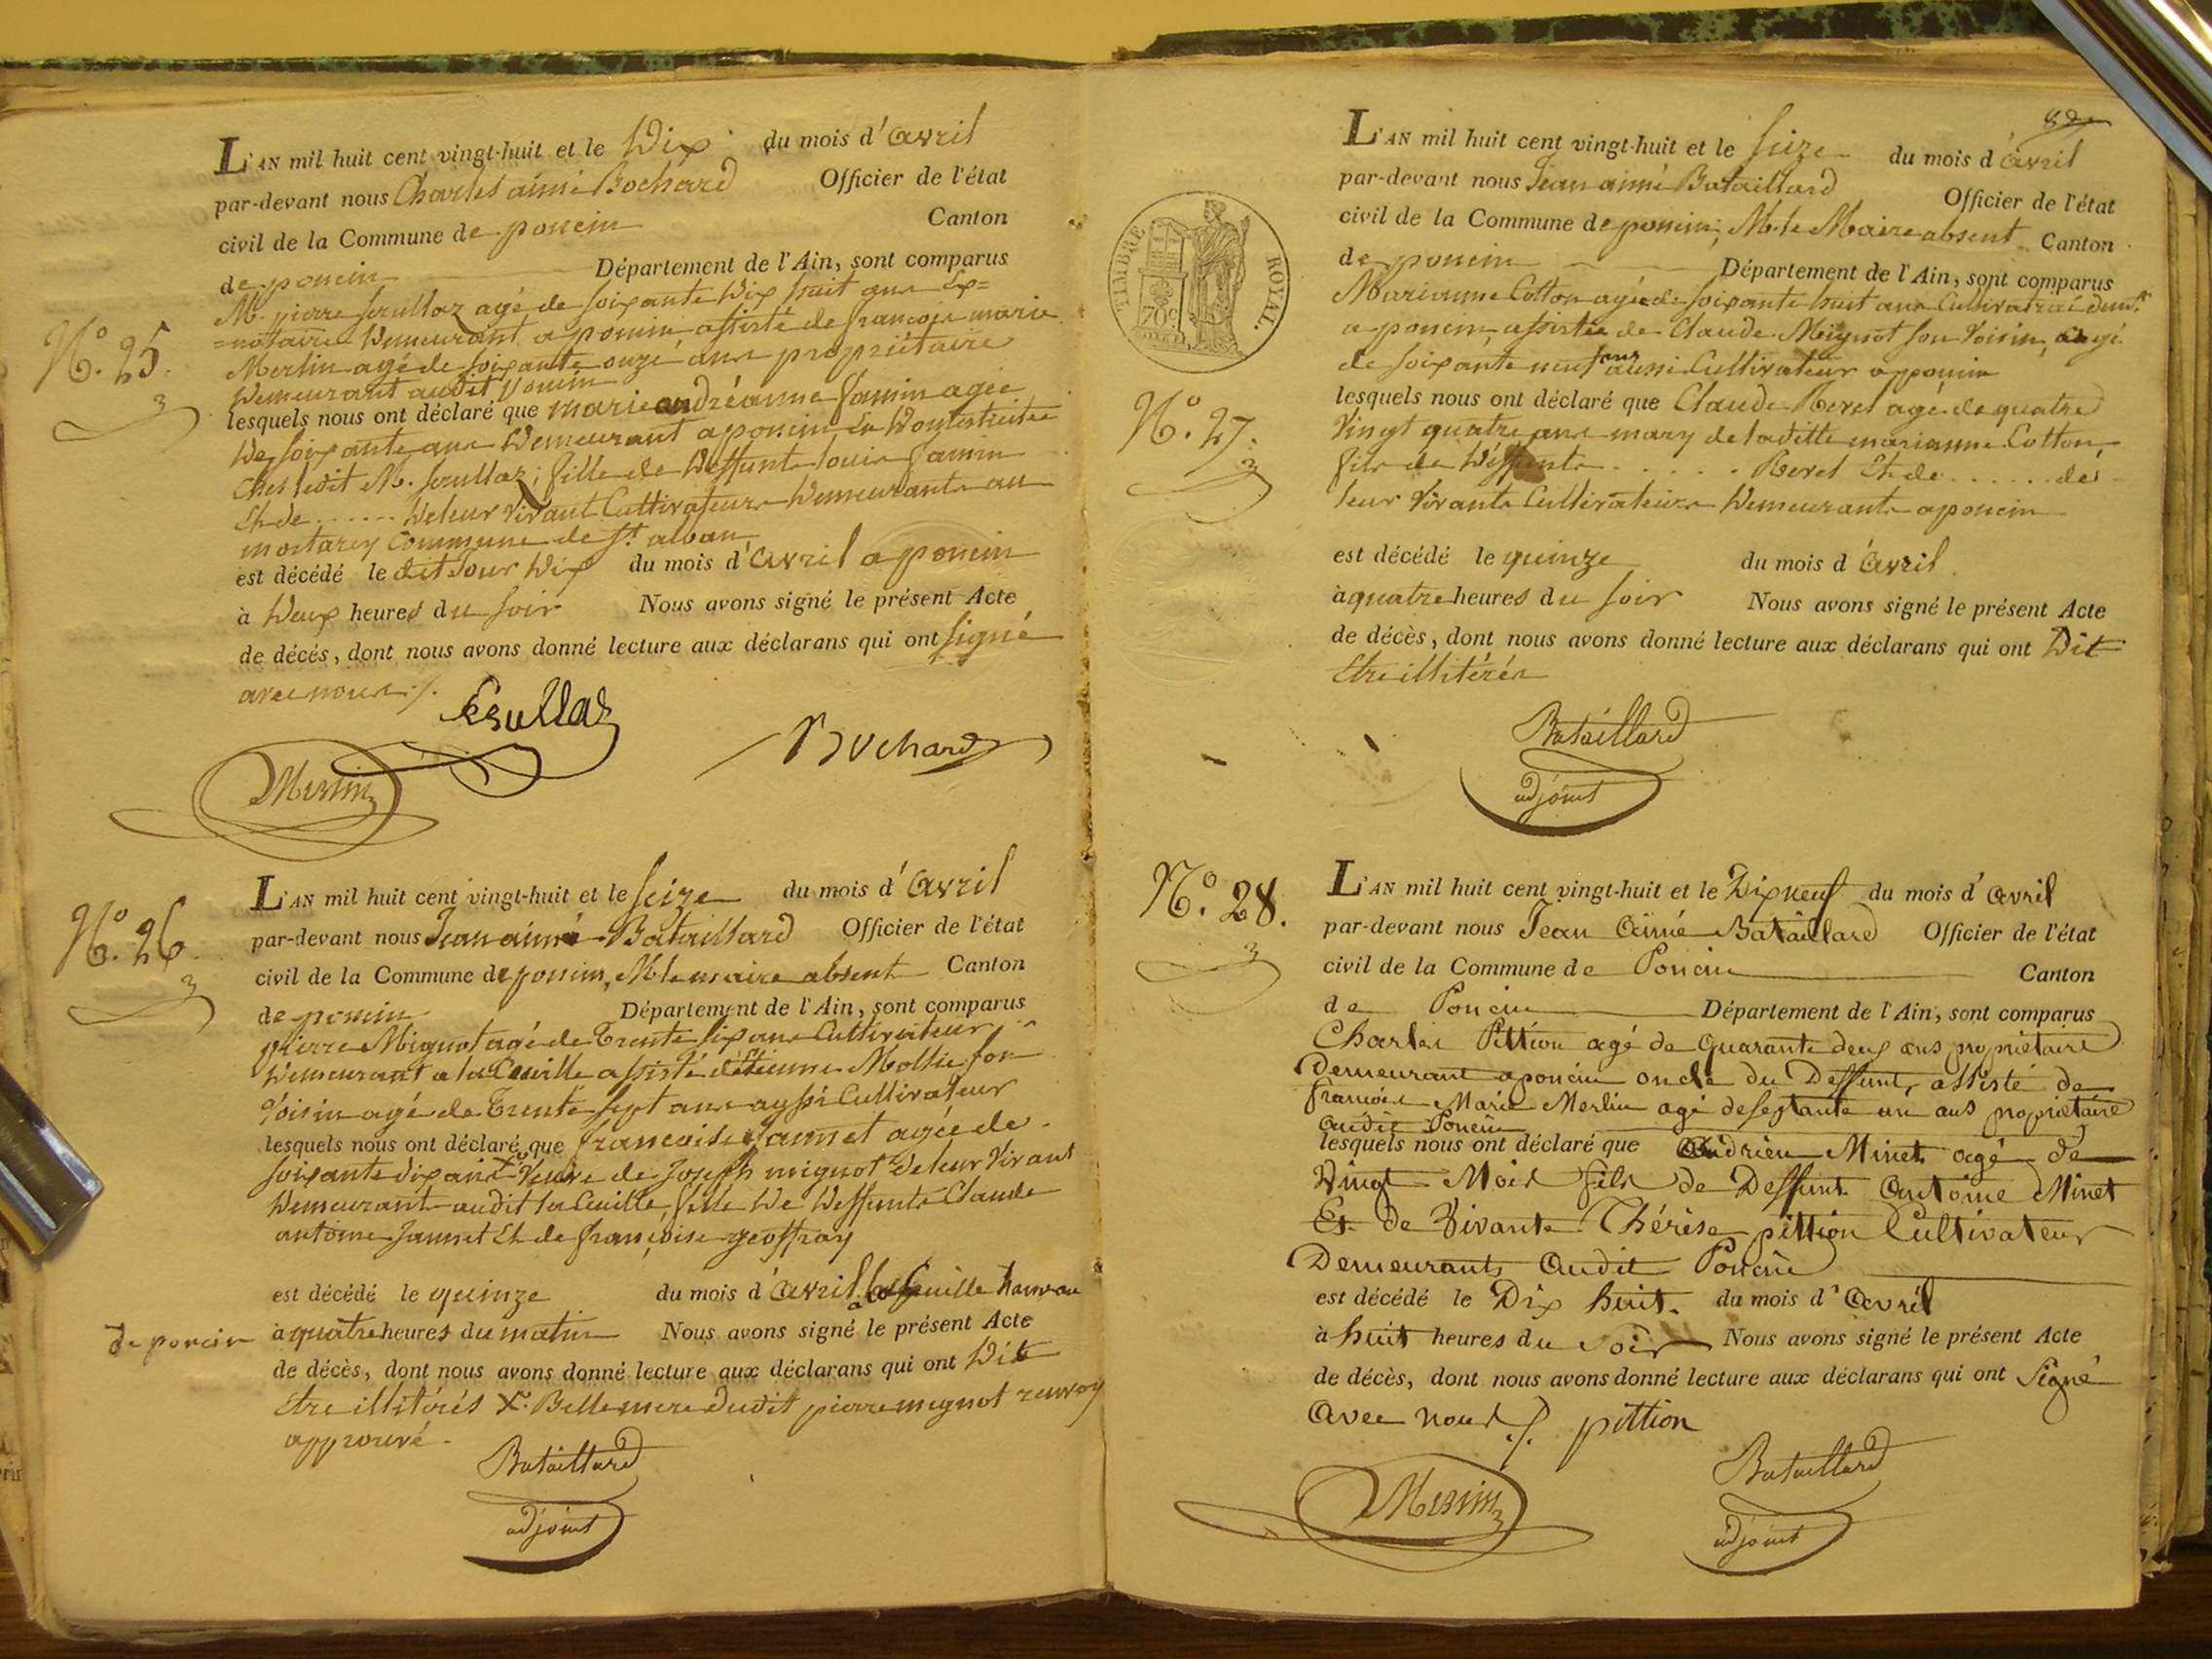 L'AN mil huit cent vingt-huit et le Dix du mois d'avril
par-devant nous Charles aimé Bochard Officier de l'état
civil de la Commune de poncin Canton
de poncin Département de l'Ain, sont comparus
M. pierre agé de soixante Dix huit ans Ex=
=notaire Demeurant a poncin assisté de francois marie
N.° 25.
Merlin agé de soixante onze ans propriétaire
Demeurant audit poncin
lesquels nous ont déclaré que marie andréanne Jamin agée
De soixante ans Demeurant a poncin En Domesticitée
Ches ledit M. fille de Deffunts louis Jamin
Et de ...... De leur vivant Cultivateurs Demeurants au
mortarey Commune de St. alban
est décédé le dit Jour Dix du mois d'avril a poncin
à Deux heures du soir Nous avons signé le présent Acte
de décés, dont nous avons donné lecture aux déclarans qui ont signé
avec nous ./.
Bochard
Merlin
L'AN mil huit cent vingt-huit et le seize du mois d'avril
N.° 26.
par-devant nous Jean aimé Bataillard Officier de l'état
civil de la Commune de poncin, M. le maire absent Canton
de poncin Département de l'Ain, sont comparus
pierre Mignot agé de Trente six ans Cultivateur
Demeurant a la Cueille assisté d'étienne Mollie son
voisin agé de Trente sept ans aussi Cultivateur
lesquels nous ont déclaré que francoise Jannet agée de
soixante dix ans X Veuve de Joseph mignot De leur vivant
Demeurant audit la Cueille, fille De Deffunts Claude
antoine Jannet Et de françoise geoffray
est décédé le quinze du mois d'avril a la Cueille hameau
de poncin à quatre heures du matin Nous avons signé le présent Acte
de décès, dont nous avons donné lecture aux déclarans qui ont Dit
Etre illitérés X. Belle mere dudit pierre mignot renvoy
approuvé.
Bataillard
adjoint
L'AN mil huit cent vingt-huit et le seize du mois d'avril
par-devant nous Jean aimé Bataillard Officier de l'état
civil de la Commune de poncin, M. le Maire absent Canton
de poncin Département de l'Ain, sont comparus
TIMBRE ROYAL.
70 c
Marianne Cotton agée de soixante huit ans Cultivatrice demt.
a poncin, assistée de Claude Mignot son voisin, agé
de soixante neuf ans aussi Cultivateur a poncin
N.° 27.
lesquels nous ont déclaré que Claude Revel agé de quatre
vingt quatre ans mary de laditte marianne Cotton,
fils de Deffunts ...... Revel Et de ...... de
leur vivants Cultivateurs Demeurants a poncin
est décédé le quinze du mois d'avril
à quatre heures du soir Nous avons signé le présent Acte
de décès, dont nous avons donné lecture aux déclarans qui ont Dit
Etre illitérés
Bataillard
adjoint
N.° 28.
L'AN mil huit cent vingt-huit et le Dix neuf du mois d'avril
par-devant nous Jean Aimé Bataillard Officier de l'état
civil de la Commune de Poncin Canton
de Poncin Département de l'Ain, sont comparus
Charles Pittion agé de Quarante deux ans propriétaire
Demeurant a poncin oncle du Deffunt, assisté de
francois Marie Merlin agé de septante un ans propriétaire
audit Poncin
lesquels nous ont déclaré que Andrien Minet agé de
Vingt Mois fils de Deffunt Antoine Minet
Et de Vivante Thérèse pittion Cultivateur
Demeurants Audit Poncin
est décédé le Dix huit. du mois d'Avril
à huit heures du soir Nous avons signé le présent Acte
de décès, dont nous avons donné lecture aux déclarans qui ont Signé
Avec Nous ./. pittion
Merlin
Bataillard
adjoint